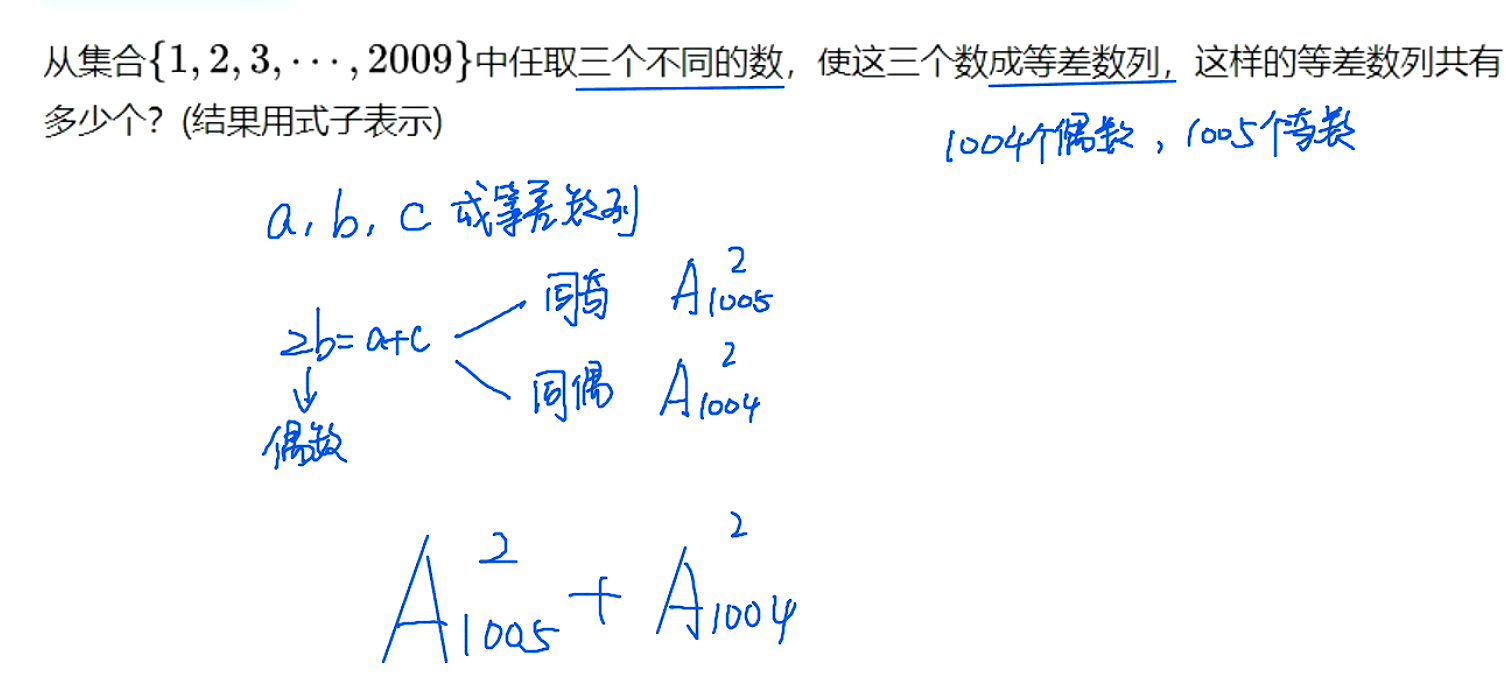 从集合{1, 2, 3, ···, 2009}中任取三个不同的数，使这三个数成等差数列，这样的等差数列共有
多少个？(结果用式子表示)
1004个偶数，1005个奇数
a, b, c 成等差数列
同奇 A²₁₀₀₅
2b=a+c
同偶 A²₁₀₀₄
偶数
A²₁₀₀₅ + A²₁₀₀₄